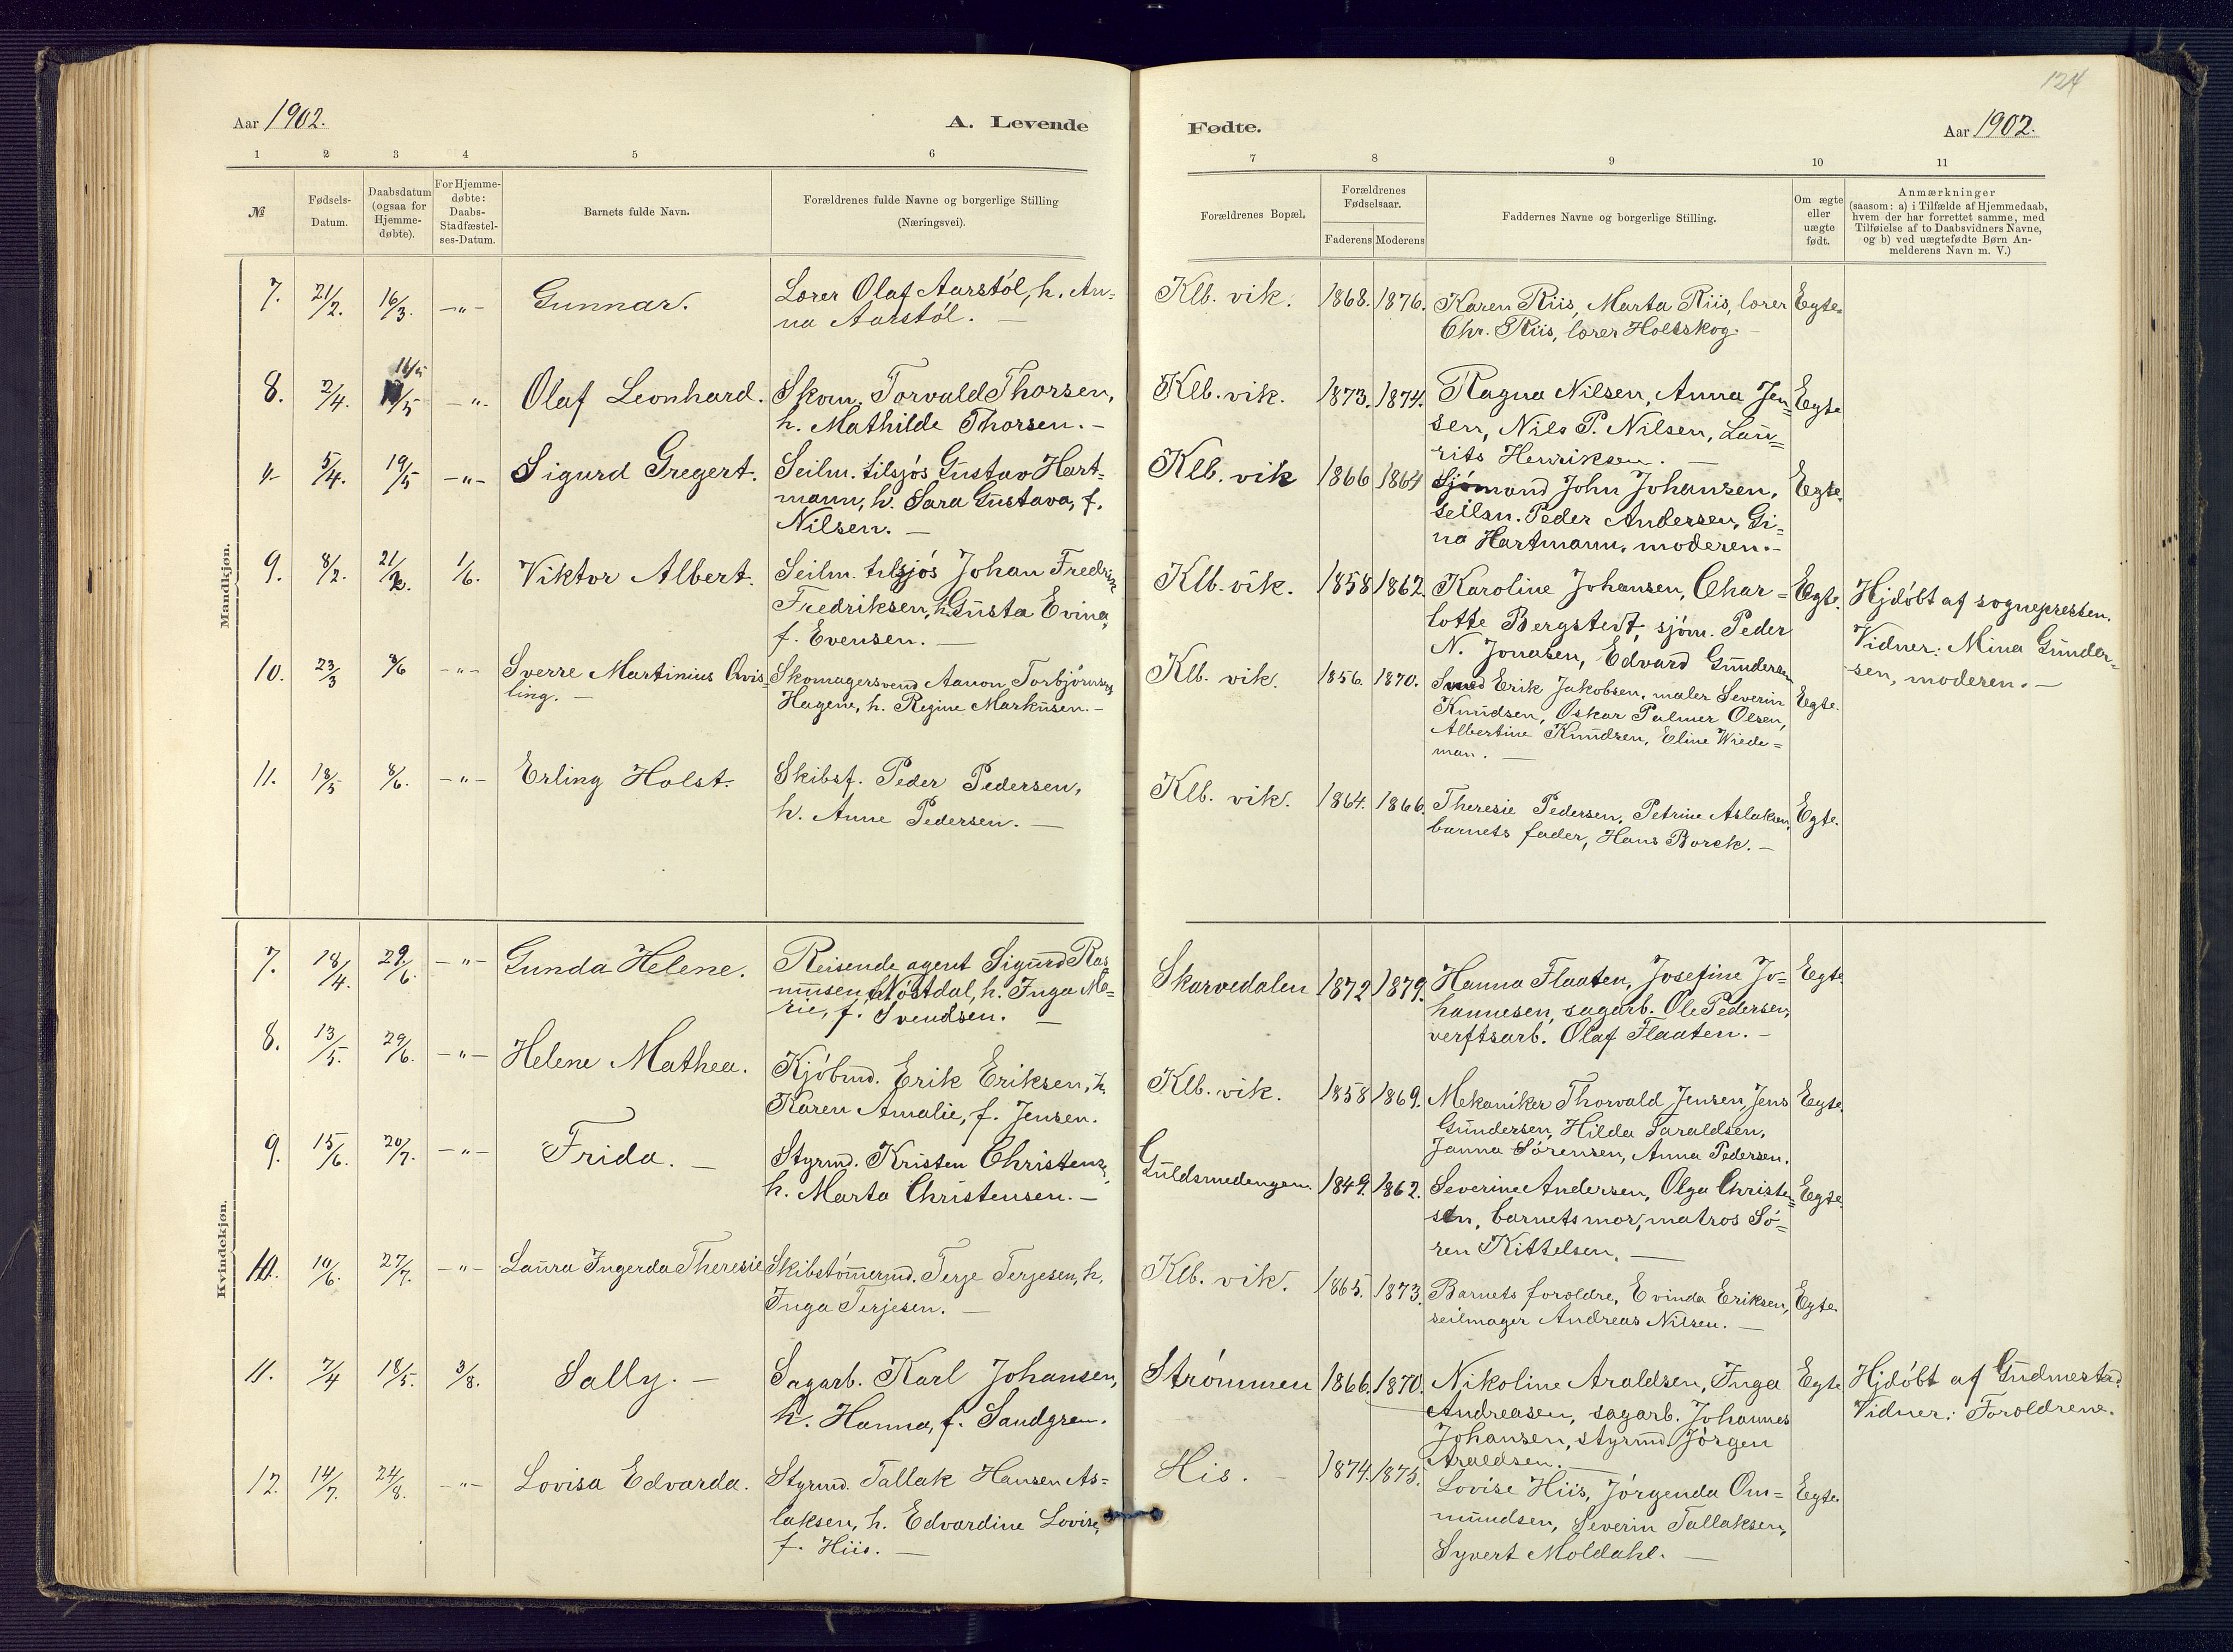 124
Aar 1902. A. Levende Fødte. Aar 1902.
1 2 3 4 5 6 7 8 9 10 11
№
Fødsels-
Datum.
Daabsdatum
(ogsaa for
Hjemme-
døbte).
For Hjemme-
døbte:
Daabs-
Stadfæstel-
ses-Datum.
Barnets fulde Navn.
Forældrenes fulde Navne og borgerlige Stilling
(Næringsvei).
Forældrenes Bopæl.
Forældrenes
Fødselsaar.
Faderens Moderens
Faddernes Navne og borgerlige Stilling.
Om ægte
eller
uægte
født.
Anmærkninger
(saasom: a) i Tilfælde af Hjemmedaab,
hvem der har forrettet samme, med
Tilføielse af to Daabsvidners Navne,
og b) ved uægtefødte Børn An-
melderens Navn m. V.)
Mandkjøn.
7. 21/2. 16/3. -"- Gunnar.
Lærer Olaf Aarstöl, h. An=
na Aarstöl. —
Klb. vik. 1868. 1876.
Karen Riis, Marta Riis, lærer
Chr. Riis, lærer Holtskog. —
Egte.
8. 2/4. -"- Olaf Leonhard.
Skom. Torvald Thorsen,
h. Mathilde Thorsen. —
Klb. vik. 1873. 1874.
Ragna Nilsen, Anna Jen=
sen, Nils P. Nilsen, Lau=
rits Henriksen. —
Egte
5/4. 19/5 -"- Sigurd Gregert.
Seilm. tilsjös Gustav Hart=
mann, h. Sara Gustava, f.
Nilsen. —
Klb. vik 1866 1864
Sjömand John Johansen,
seilsm. Peder Andersen, Gi=
na Hartmann, moderen. —
Egte.
9. 8/2. 21/2. 1/6. Viktor Albert.
Seilm. tilsjös Johan Fredrik
Fredriksen, h. Gusta Evina,
f. Evensen. —
Klb. vik. 1858 1862.
Karoline Johansen, Char=
lotte Bergstedt, sjöm. Peder
N. Jonasen, Edvard Gundersen
Egte.
Hjdöbt af sognepresten.
Vidner: Mina Gunder=
sen, moderen. —
10. 23/3 8/6 -"- Sverre Martinius Qvis=
ling. —
Skomagersvend Aanon Torbjörnsen
Hagene, h. Regine Markusen. —
Klb. vik. 1856. 1870.
Smed Erik Jakobsen, maler Severin
Knudsen, Oskar Palmer Olsen,
Albertine Knudsen, Eline Wiede=
man. —
Egte.
11. 18/5 8/6. -"- Erling Holst.
Skibsf. Peder Pedersen,
h. Anne Pedersen. —
Klb. vik. 1864. 1866.
Theresie Pedersen, Petrine Aslaksen,
barnets fader, Hans Borck. —
Egte.
Kvindekjøn.
7. 18/4. 29/6. -"- Gunda Helene.
Reisende agent Sigurd Ras
mussen Nöstdal, h. Inga Ma=
rie, f. Svendsen. —
Skarvedalen 1872 1879.
Hanna Flaaten, Josefine Jo=
hannesen, sagarb. Ole Pedersen,
verftsarb. Olaf Flaaten. —
Egte.
8. 13/5. 29/6. -"- Helene Mathea.
Kjöbmd. Erik Eriksen, h.
Karen Amalie, f. Jensen.
Klb. vik. 1858 1869.
Mekaniker Thorvald Jensen, Jens
Gundersen, Hilda Taraldsen,
Janna Sörensen, Anna Pedersen.
Egte.
9. 15/6. 20/7. -"- Frida. —
Styrmd. Kristen Christens.,
h. Marta Christensen. —
Guldsmedengen. 1849. 1862.
Severine Andersen, Olga Christen=
sen, barnets mor, matros Sö=
ren Kittelsen. —
Egte.
10. 10/6. 27/7. -"- Laura Ingerda Theresie
Skibstömermd. Terje Terjesen, h.
Inga Terjesen. —
Klb. vik. 1865. 1873.
Barnets forældre, Evinda Eriksen,
seilmager Andreas Nilsen. —
Egte
11. 7/4 18/5. 3/8. Sally. —
Sagarb. Karl Johansen,
h. Hanna, f. Sandgren.
Strömmen 1866. 1870.
Nikoline Araldsen, Inga
Andreasen, sagarb. Johannes
Johansen, styrmd. Jörgen
Araldsen. —
Egte
Hjdöbt af Gudmestad.
Vidner: Forældrene.
12. 14/7. 24/8. -"- Lovisa Edvarda.
Styrmd. Tallak Hansen As=
laksen, h. Edvardine Lovise,
f. Hiis. —
His. — 1874. 1875.
Lovise Hiis, Jörgenda Om=
mundsen, Severin Tallaksen,
Syvert Moldahl. —
Egte